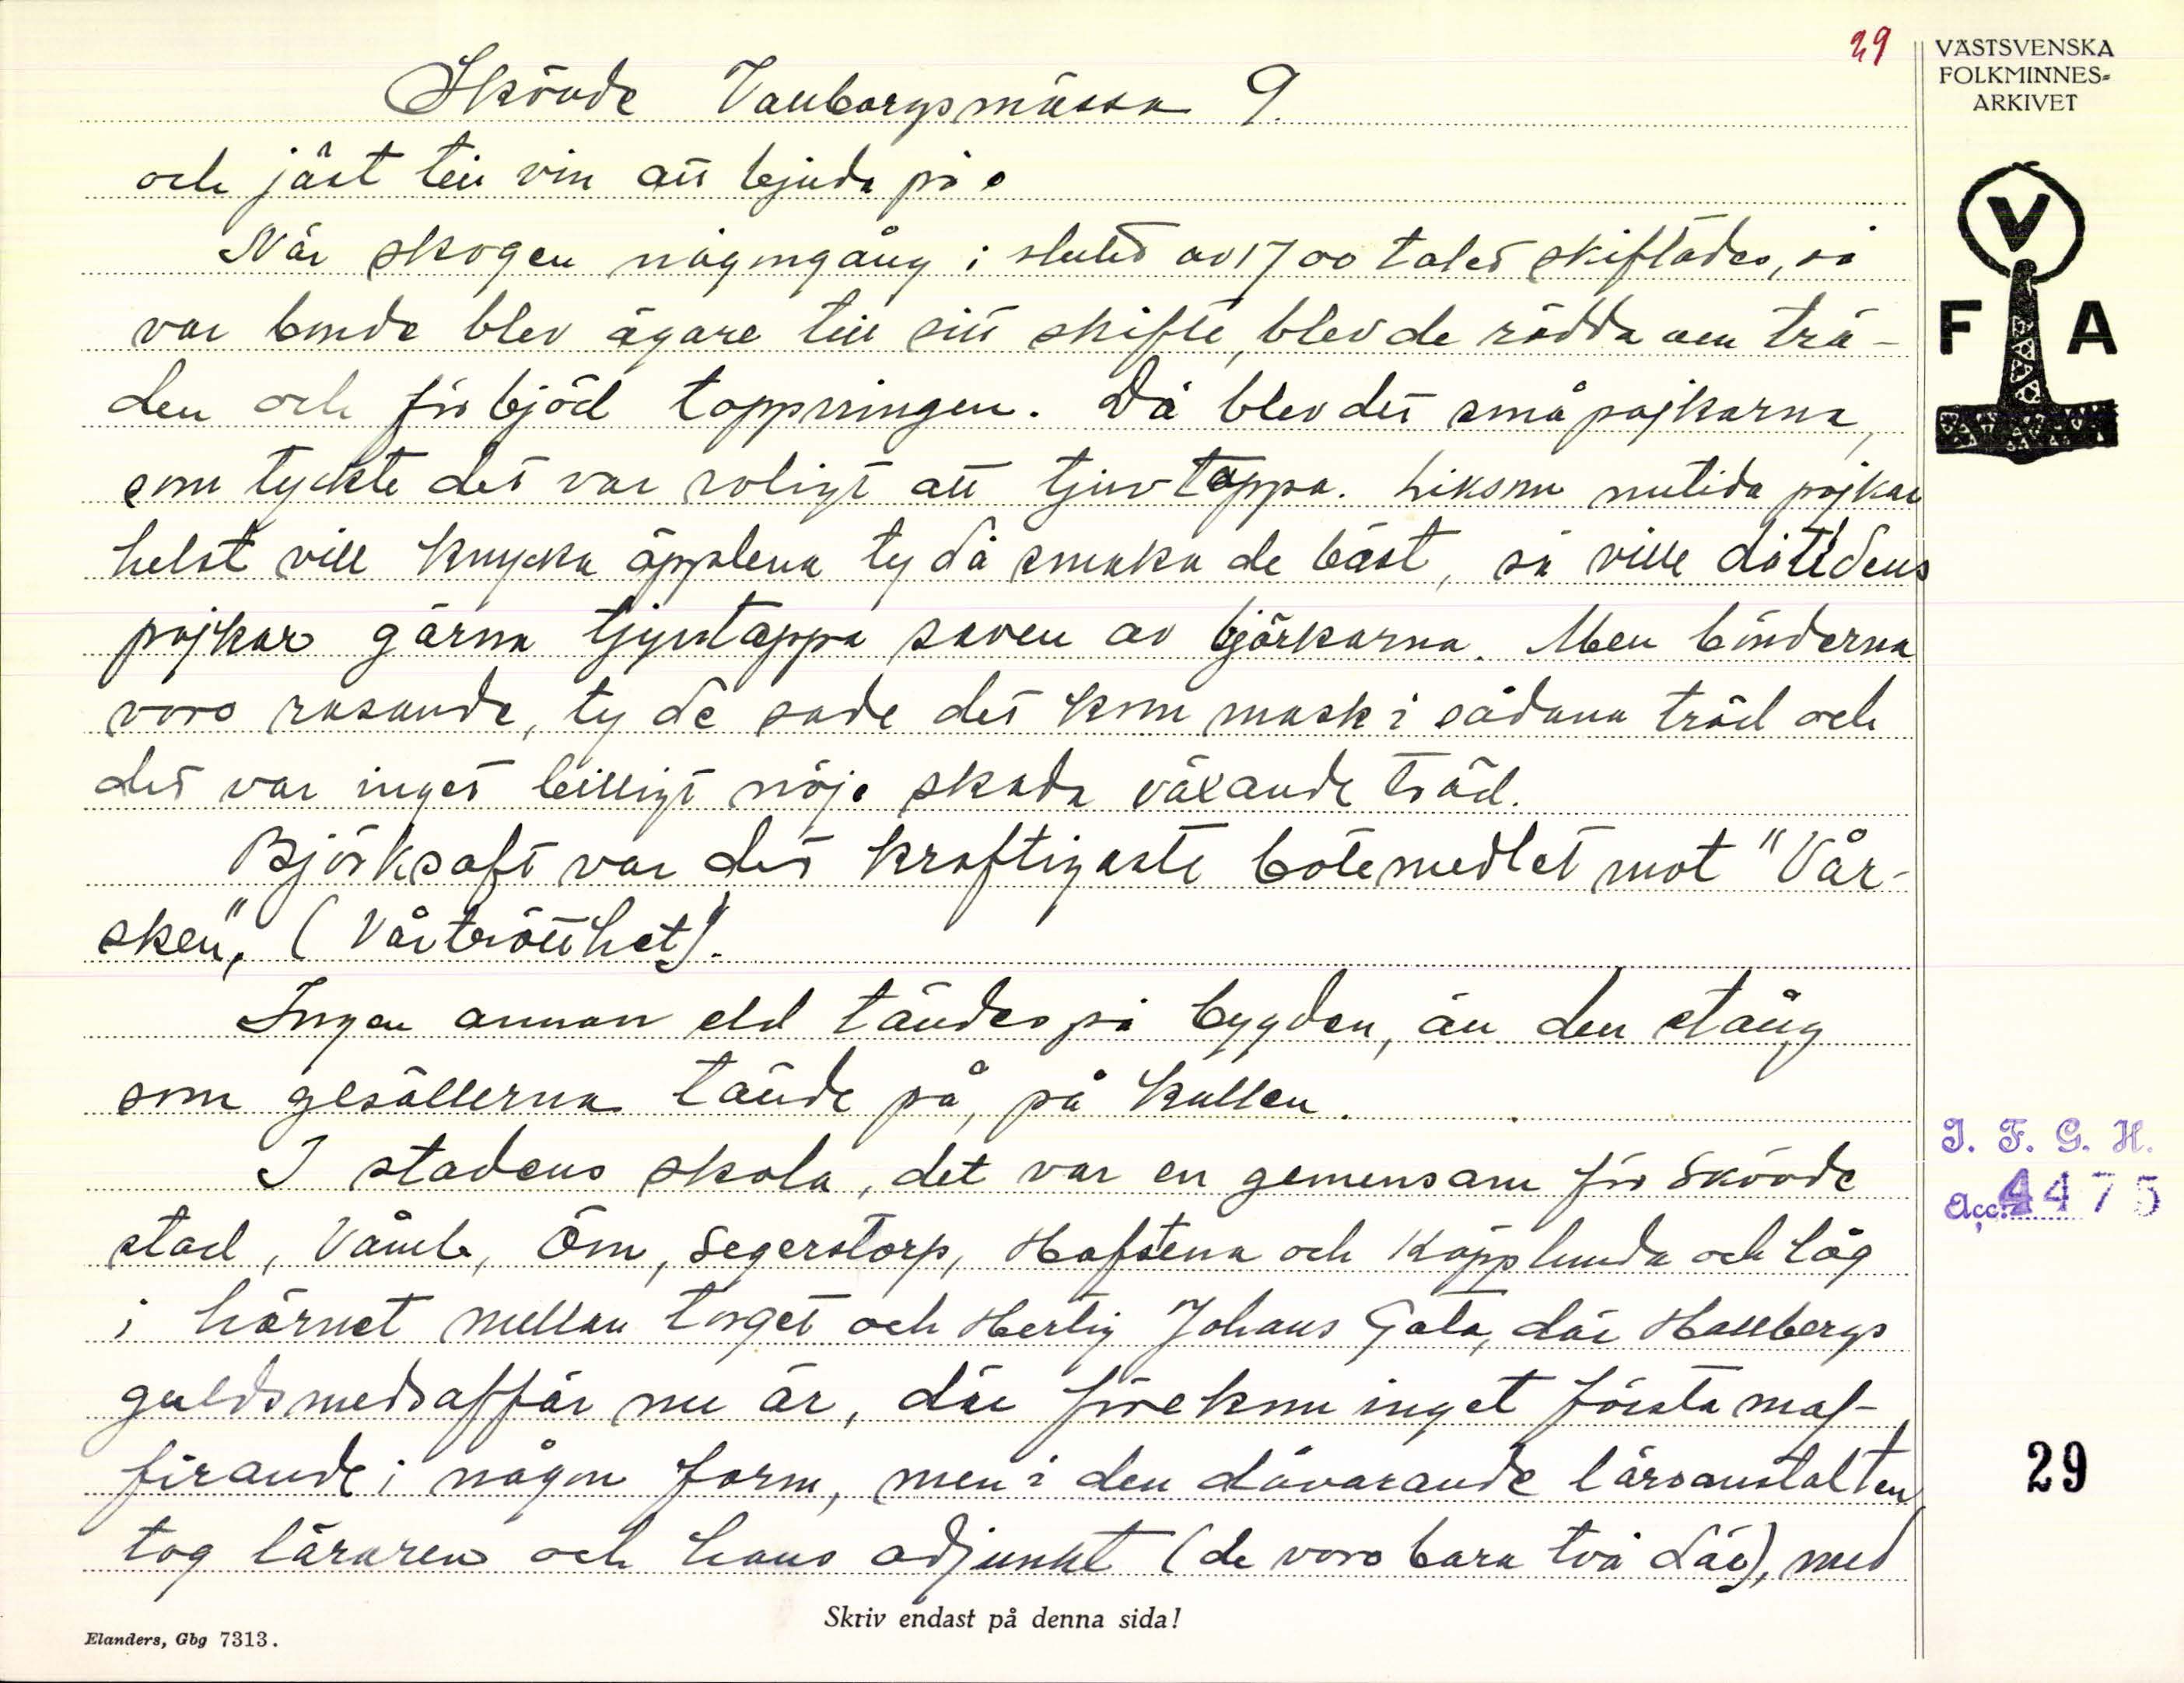 29
VÄSTSVENSKA
FOLKMINNES-
ARKIVET
Skövde Valborgsmässa 9.
och jäst till vin att bjuda på.
När skogen någongång i slutet av 1700 talet skiftades, så
var bonde blev ägare till sitt skifte, blev de rädda om trä-
den och förbjöd tappningen. Då blev det småpojkarna,
som tyckte det var roligt att tjuvtappa. Liksom nutida pojkar
helst vill knycka äpplena ty då smaka de bäst, så ville dåtidens
pojkar gärna tjyvtappa saven av björkarna. Men bönderna
voro rasande, ty de sade det kom mask i sådana träd och
det var inget billigt nöje skada växande träd.
Björksaft var det kraftigaste botemedlet mot "Vår-
sken", (Vårtrötthet).
Ingen annan eld tändes på bygden, än den stång
som gesällerna tände på, på kullen.
I stadens skola, det var en gemensam för Skövde
stad, Våmb, Öm, Segerstorp, Hafstena och Käpplunda och låg
i hörnet mellan torget och Hertig Johans Gata, där Hallbergs
guldsmedsaffär nu är, där förekom inget första maj-
firande i någon form, men i den dåvarande läroanstalten,
tog läraren och hans adjunkt (de voro bara två där), med
V
F A
I. F. G. H.
Acc. 4475
29
Skriv endast på denna sida!
Elanders, Gbg 7313.